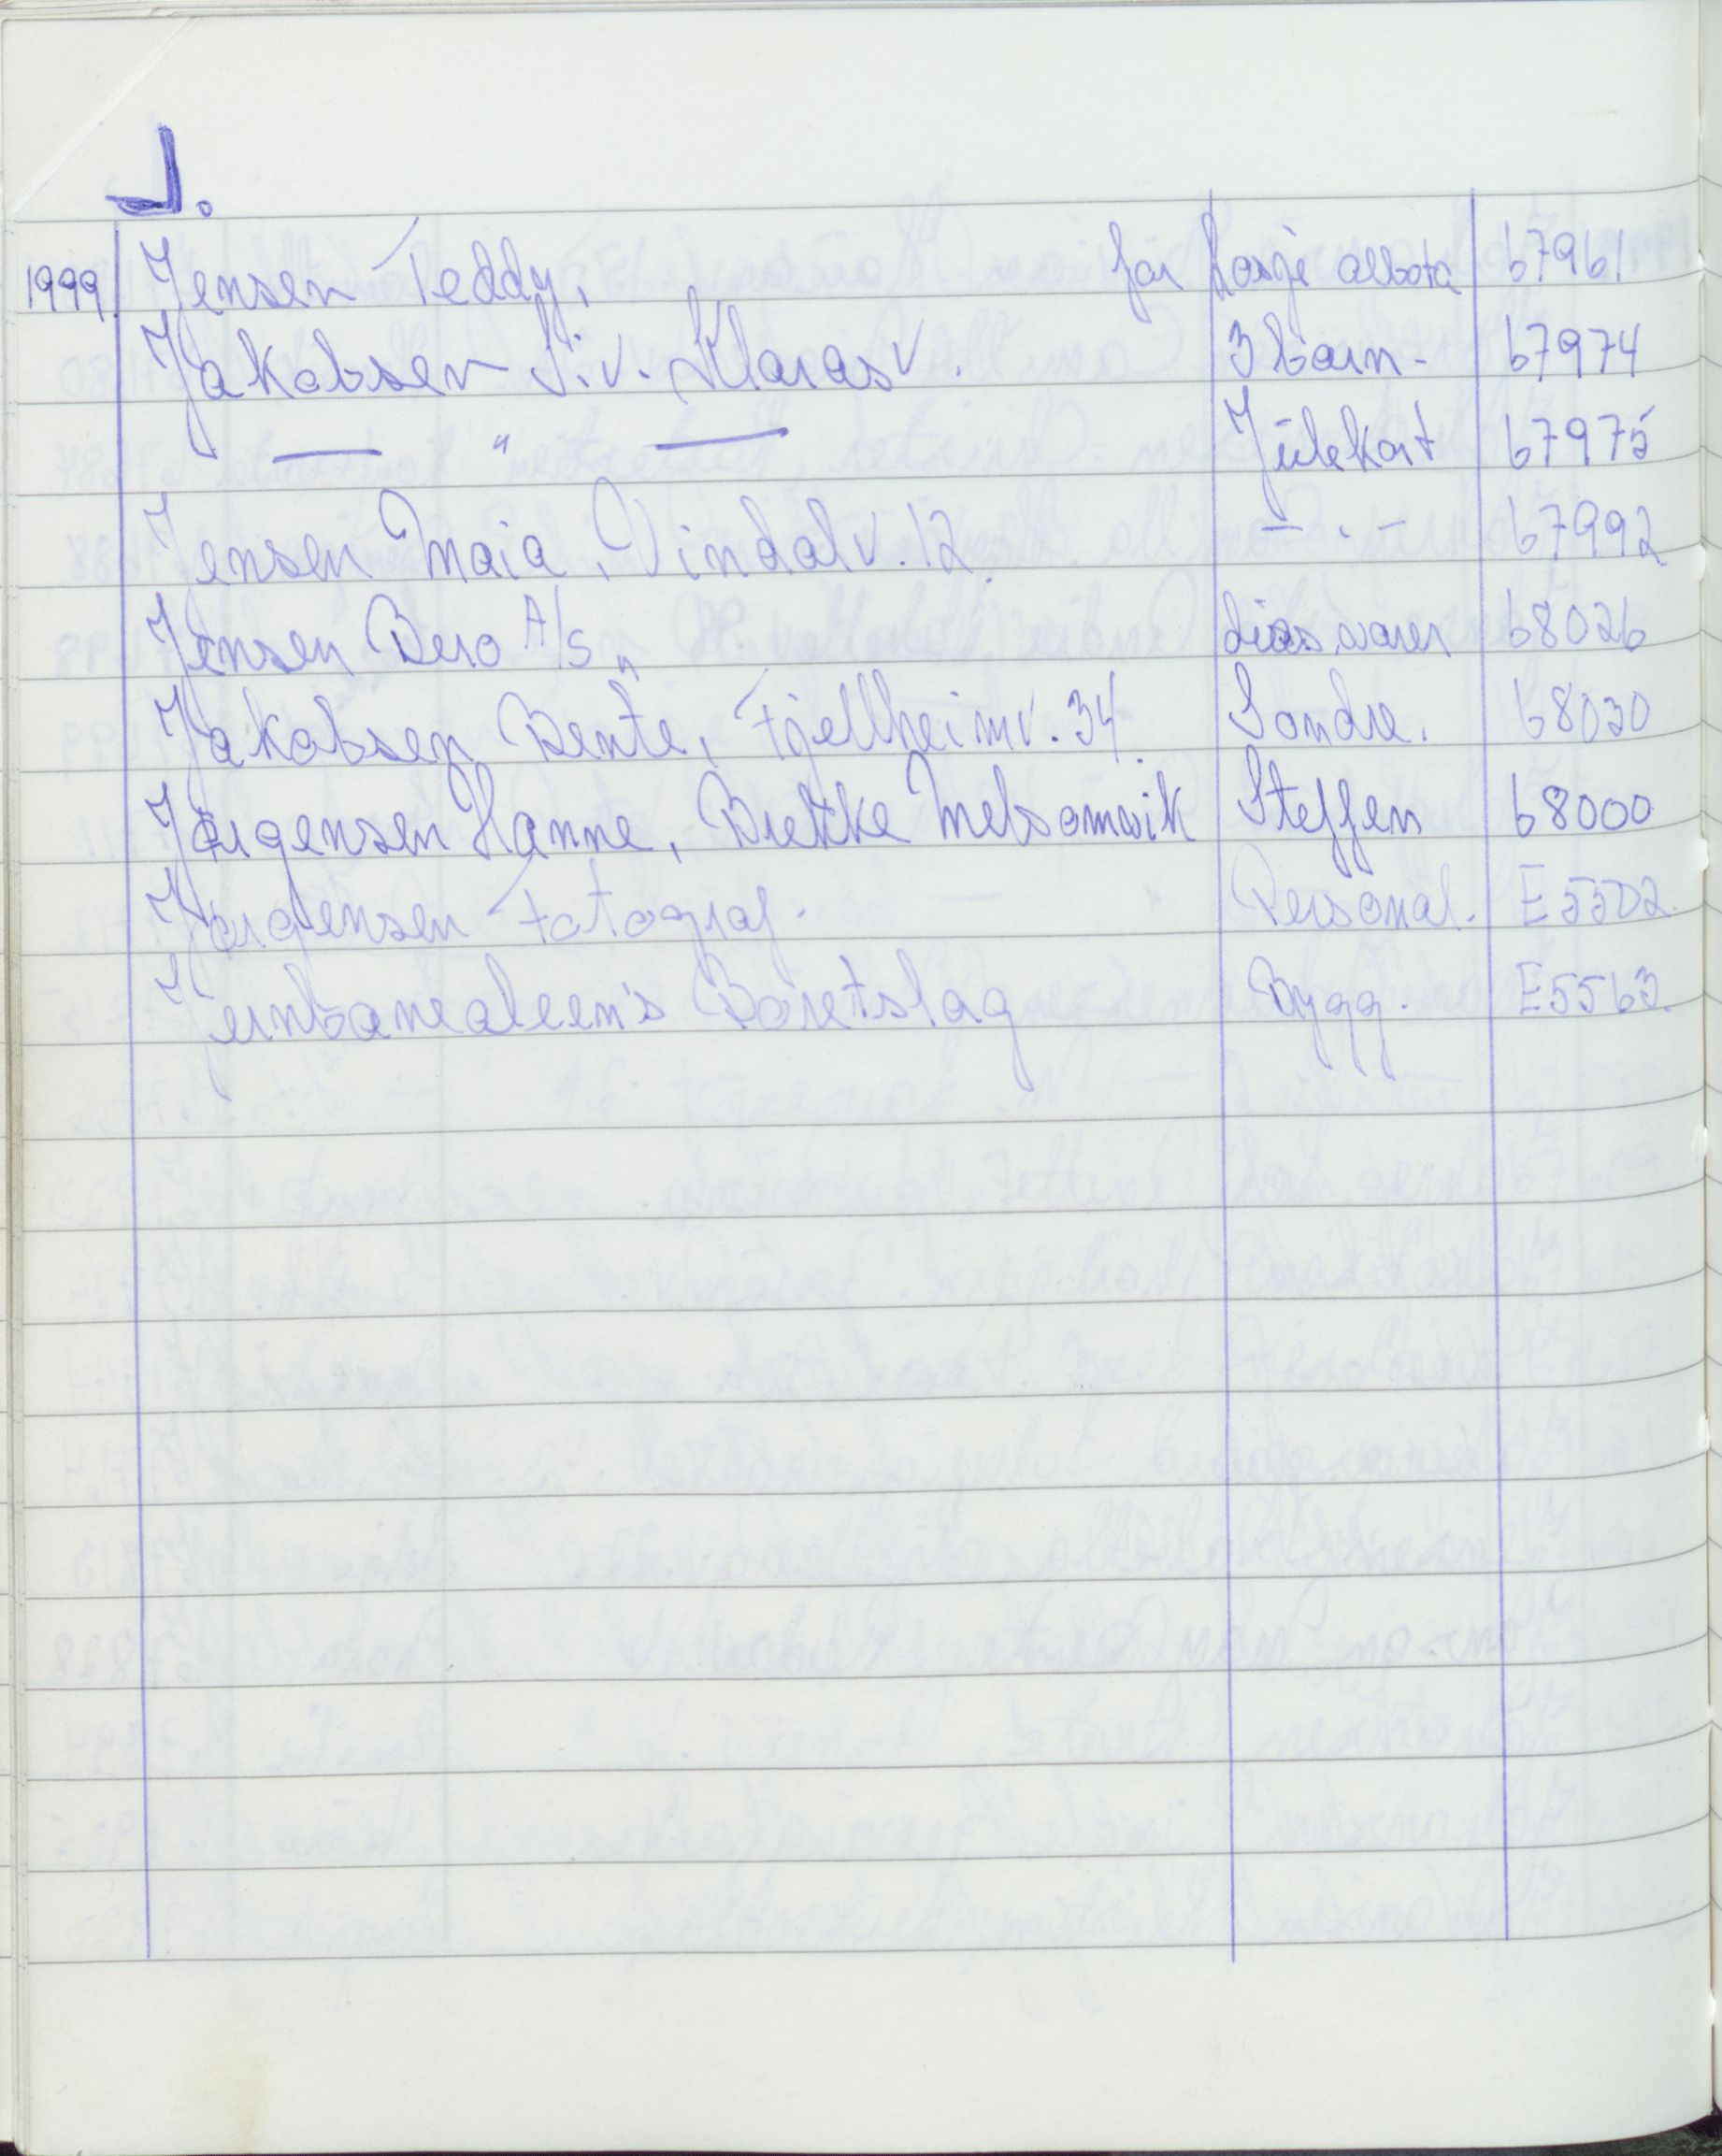 J.
1999 Jensen Teddy, for Kosje albota 67961
Jakobsen Siv. Klarasv. 3 barn - 67974
— " — Julekort 67975
Jensen Maia, Vindalv. 12. — . — 67992
Jensen Bero A/S " div. varer 68026
Jakobsen Bente, Fjellheimv. 34. Sondre. 68030
Jørgensen Hanne, Melsomvik Steffen 68000
Jørgensen Fotograf. Personal. E5502.
Jernbanealleen's Boretslag Bygg. E5563.